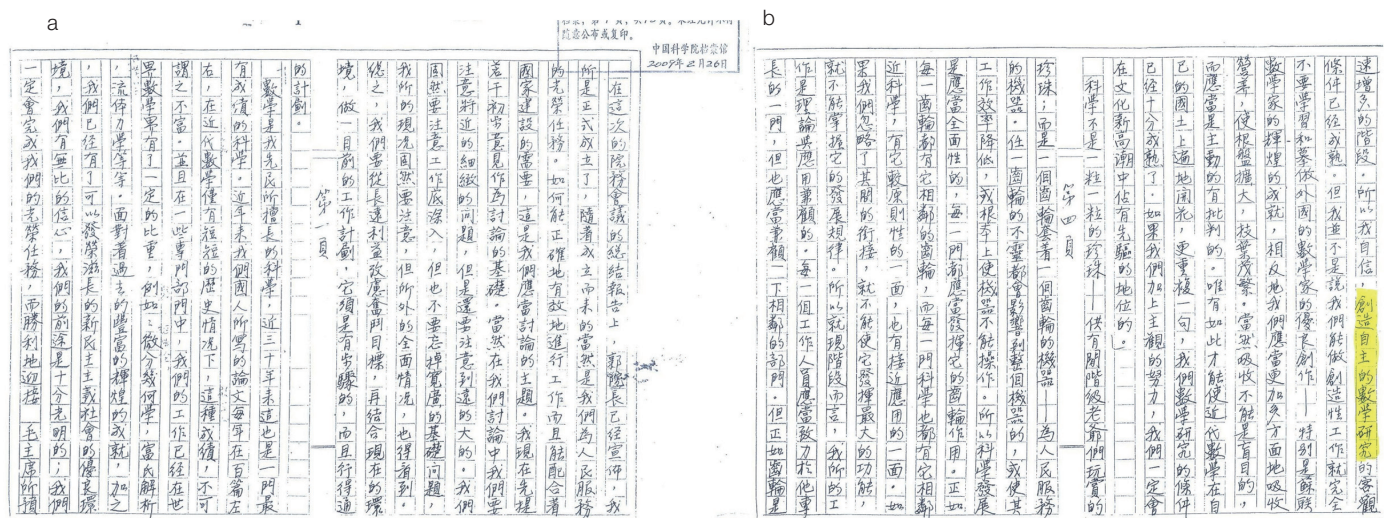 a
档案,第1页,共
随意公布或复印。
中国科学院档案馆
2009年2月26日
在這次的院務會議的總結報告上,郭院長已經宣佈,我
所是正式成立了,隨着成立而來的當然是我們為人民服務
的光榮任務。如何能正確地有效地進行工作而且能配合着
國家建設的需要,這是我們應當討論的主題。我現在先提
若干初步意見作為討論的基礎。當然在我們討論中我們要
注意到近的細緻的問題,但是還要注意到遠的大的。我們
固然要注意工作底深入,但也不要忘掉寬廣的基礎問題,
我所的現況固然要注意,但所外的全面情況,也得看到。
總之,我們要從長遠利益攷慮奮鬥目標,再結合現在的環
境,做一目前的工作計劃,它須是有步驟的,而且行得通
第一頁
的計劃。
數學是我先民所擅長的科學。近三十年來這也是一門最
有成績的科學。近年來我們國人所寫的論文每年在百篇左
右,在近代數學僅有短短的歷史情況下,這種成績,不可
謂之不富。並且在一些專門部門中,我們的工作已經在世
界數學界有了一定的比重,例如:微分幾何學,富氏解析
,流佈力學等等。面對着過去的豐富的輝煌的成就,加之
,我們已經有了可以發榮滋長的新民主主義社會的優良環
境,我們有無比的信心,我們的前途是十分光明的;我們
一定會完成我們的光榮任務,而勝利地迎接 毛主席所預
b
速增多的階段。所以我自信,創造自主的數學研究的客觀
條件已經成熟。但我並不是說我們能做創造性工作就完全
不要學習和摹倣外國的數學家的優良創作——特別是蘇聯
數學家的輝煌的成就,相反地我們應當更加多方面地吸收
營養,使根盤擴大,枝葉茂繁。當然吸收不能是盲目的,
而應當是主動的有批判的。唯有如此才能使近代數學在自
己的國土上遍地開花,更重複一句,我們數學研究的條件
已經十分成熟了。如果我們加上主觀的努力,我們一定會
在文化新高潮中佔有先驅的地位的。
科學不是一粒一粒的珍珠——供有閒階級老爺們玩賞的
第四頁
珍珠;而是一個齒輪套着一個齒輪的機器——為人民服務
的機器。任一齒輪的不靈都會影響到整個機器的,或使其
工作效率降低,或根本上使機器不能操作。所以科學發展
是應當全面性的,每一門都應當發揮它的齒輪作用。正如
每一齒輪都有它相鄰的齒輪,而每一門科學也都有它相鄰
近科學,有它較原則性的一面,也有接近應用的一面。如
果我們忽略了其間的銜接,就不能使它發揮最大的功能,
就不能掌握它的發展規律。所以就現階段而言,我所的工
作是理論與應用兼顧的。每一個工作人員應當致力於他專
長的一門,但也應當兼顧一下相鄰的部門。但正如齒輪是